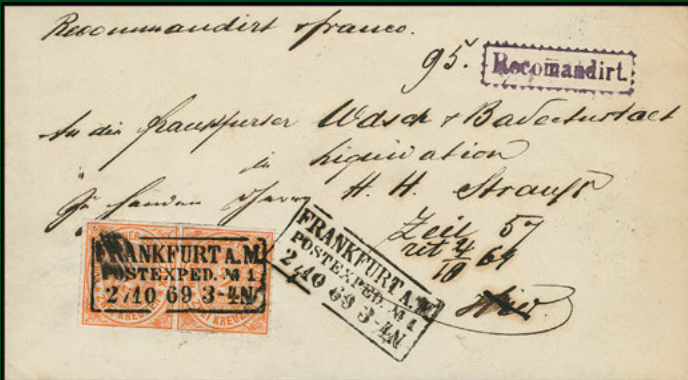 Recommandirt & franco.
95.
Recomandirt.
An die Frankfurter Wasch & Badeanstalt
in Liquidation
Zu Handen Herrn H. H. Strauß
Zeil 57
ret 4/10 69
hier.
FRANKFURT A.M.
POSTEXPED. № 1
2/10 69 3-4N
FRANKFURT A.M.
POSTEXPED. № 1
2/10 69 3-4N
KREUZER